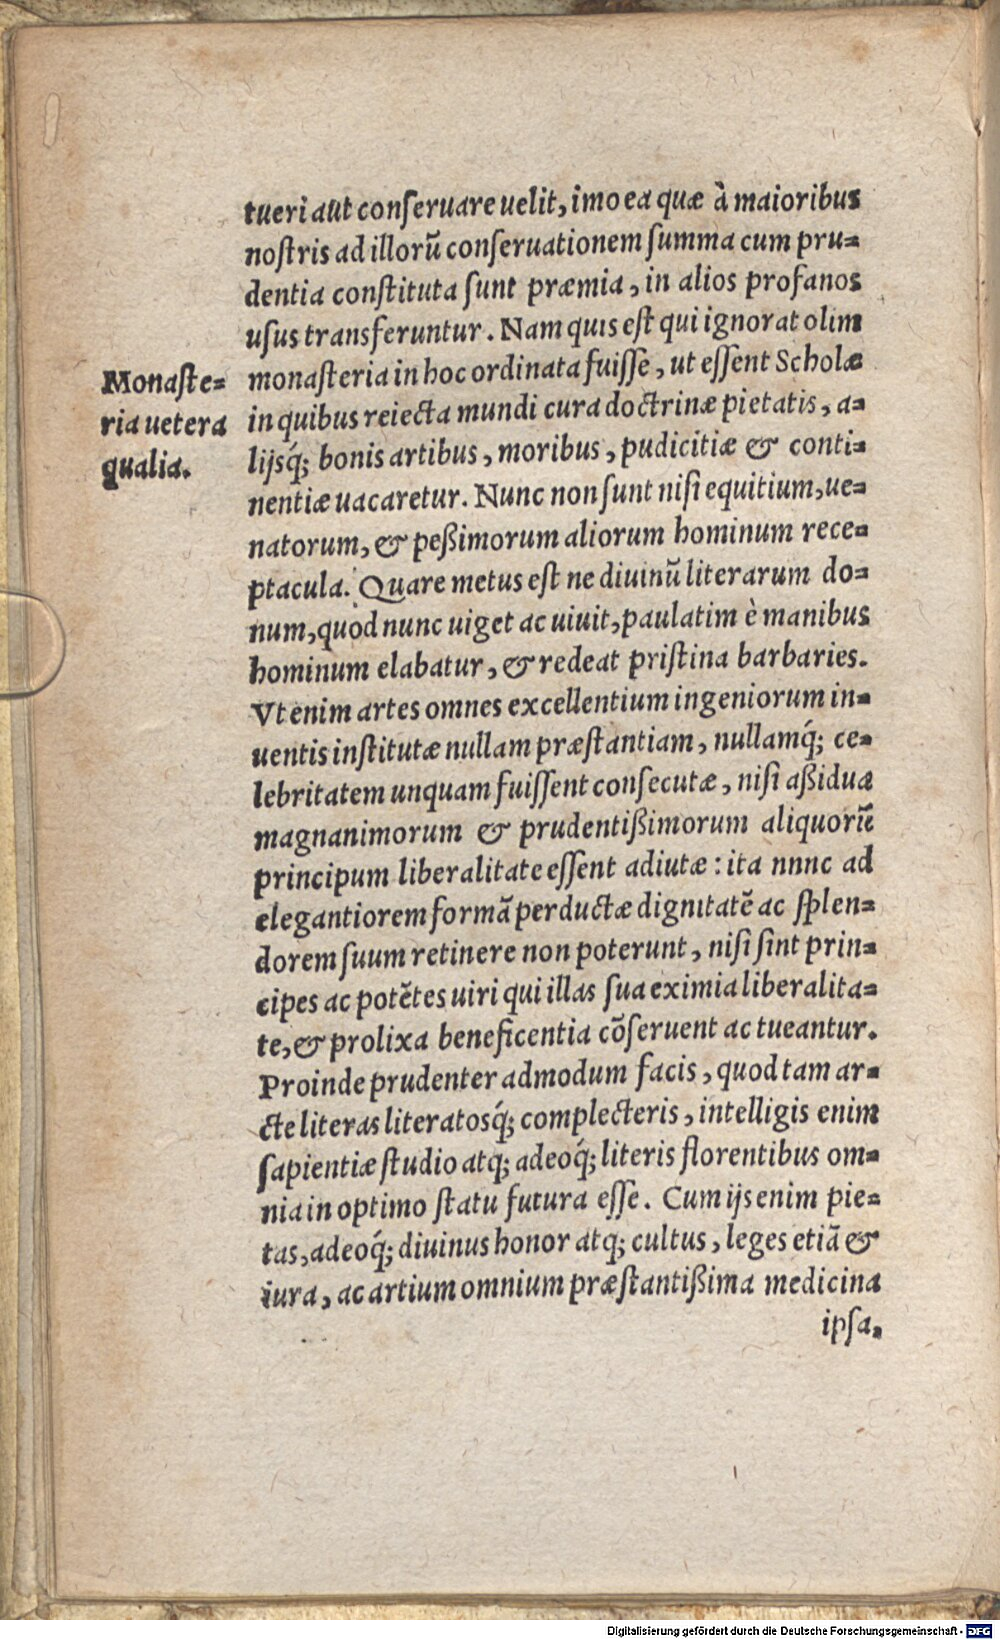 tueri aut conſeruare uelit, imo ea quæ à maioribus
noſtris ad illorū conſeruationem ſumma cum pru⸗
dentia conſtituta ſunt præmia, in alios profanos
uſus transferuntur. Nam quis eſt qui ignorat olim
Monaſte⸗
ria uetera
qualia.
monaſteria in hoc ordinata fuiſſe, ut eſſent Scholæ
in quibus reiecta mundi cura doctrinæ pietatis, a⸗
lijsq́; bonis artibus, moribus, pudicitiæ & conti⸗
nentiæ uacaretur. Nunc non ſunt niſi equitium, ue⸗
natorum, & peßimorum aliorum hominum rece⸗
ptacula. Quare metus eſt ne diuinū literarum do⸗
num, quod nunc uiget ac uiuit, paulatim è manibus
hominum elabatur, & redeat priſtina barbaries.
Vt enim artes omnes excellentium ingeniorum in⸗
uentis inſtitutæ nullam præſtantiam, nullamq́; ce⸗
lebritatem unquam fuiſſent consecutæ, niſi aßidua
magnanimorum & prudentißimorum aliquorū
principum liberalitate eſſent adiutæ: ita nnnc ad
elegantiorem formā perductæ dignitatē ac ſplen⸗
dorem ſuum retinere non poterunt, niſi ſint prin⸗
cipes ac potētes uiri qui illas ſua eximia liberalita⸗
te, & prolixa beneficentia cōſeruent ac tueantur.
Proinde prudenter admodum facis, quod tam ar⸗
cte literas literatosq́; complecteris, intelligis enim
ſapientiæ ſtudio atq; adeoq́; literis florentibus om⸗
nia in optimo ſtatu futura eſſe. Cum ijs enim pie⸗
tas, adeoq́; diuinus honor atq; cultus, leges etiā &
iura, ac artium omnium præſtantißima medicina
ipſa.
Digitalisierung gefördert durch die Deutsche Forschungsgemeinschaft - DFG